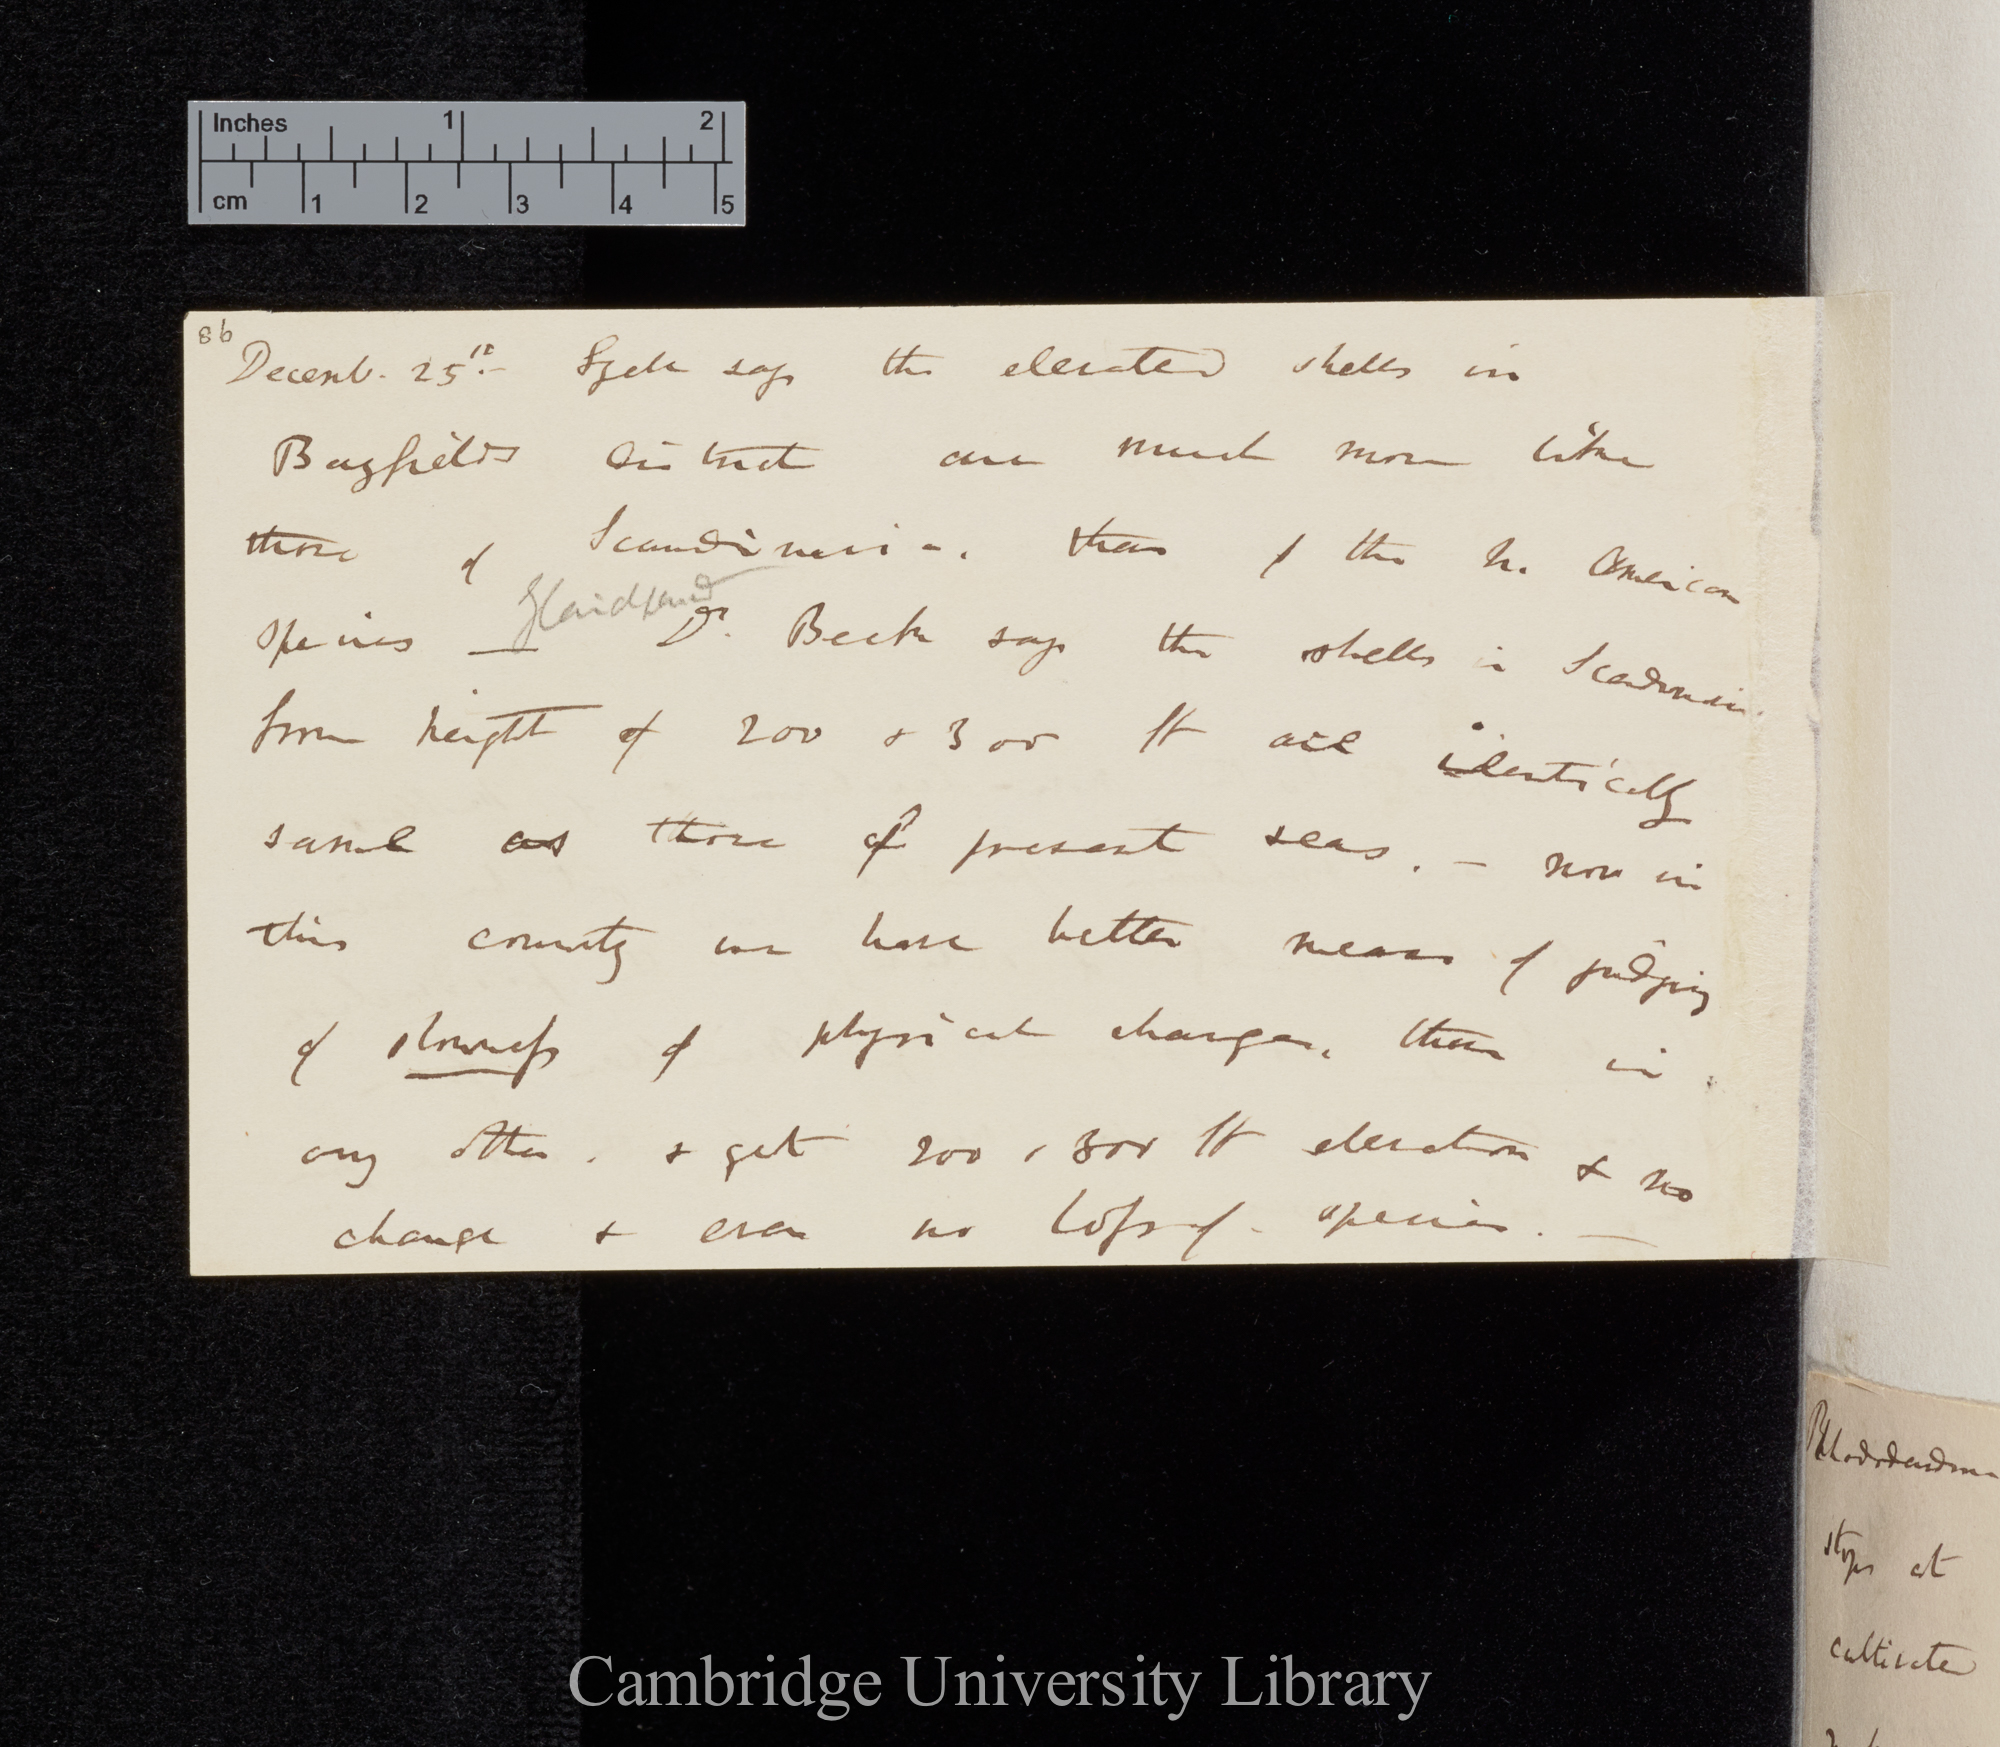 Inches 1 2
cm 1 2 3 4 5
86
Decemb. 25th.— Lyell says the elevated shells in
Bayfields district are much more like
those of Scandinavia, than of the N. American
species — Dr. Beck says the shells in Scandinavia
from height of 200 & 300 ft are identically
same as those of present seas. — now in
this country we have better means of judging
of slowness of physical changes, than in
any other. & get 200 & 300 ft elevation & no
change & even no loss of species. —
Rhododendron
stops at
cultivated
Cambridge University Library